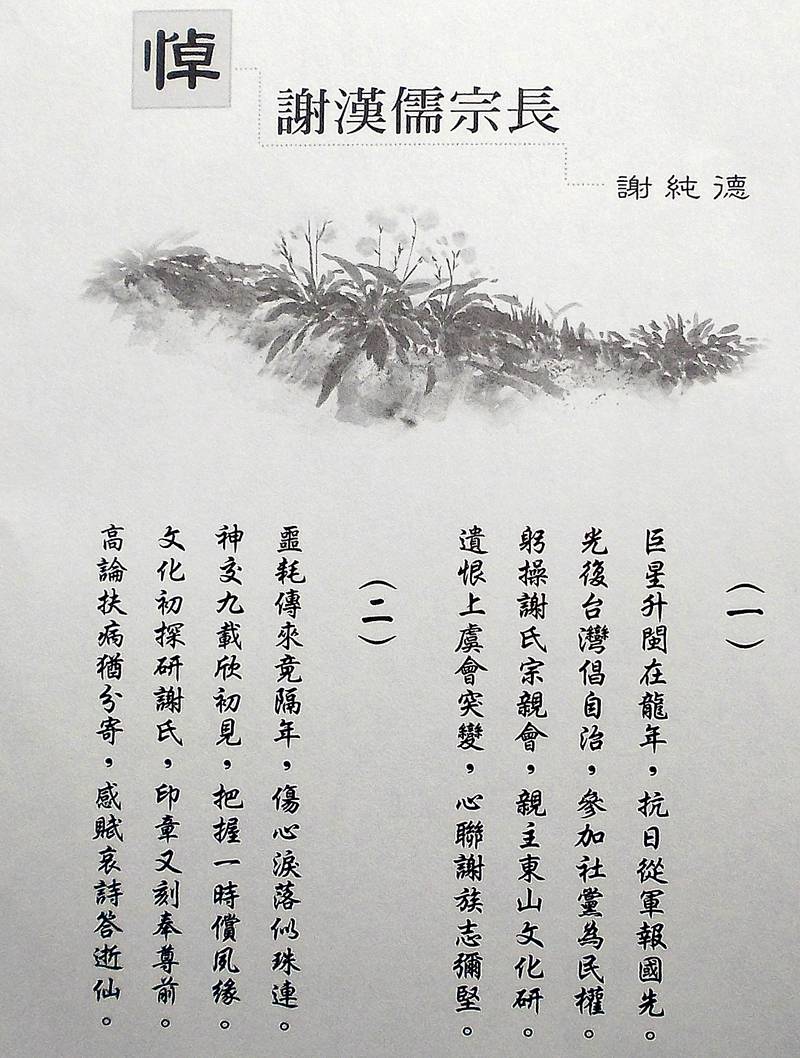 悼
謝漢儒宗長
謝純德
（一）
巨星升閩在龍年，抗日從軍報國先。
光復台灣倡自治，參加社黨為民權。
躬操謝氏宗親會，親主東山文化研。
遺恨上虞會突變，心聯謝族志彌堅。
（二）
噩耗傳來竟隔年，傷心淚落似珠連。
神交九載欣初見，把握一時償夙緣。
文化初探研謝氏，印章又刻奉尊前。
高論扶病猶分寄，感賦哀詩答逝仙。